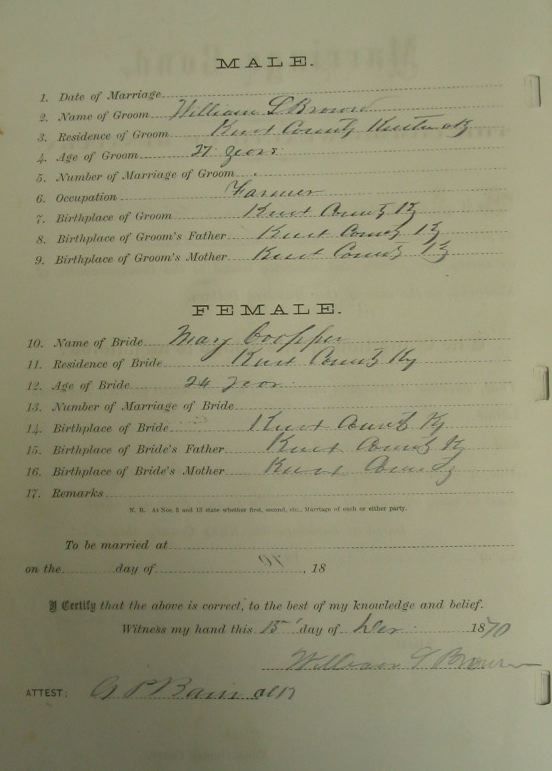 MALE.
1. Date of Marriage
2. Name of Groom William S Brown
3. Residence of Groom County
4. Age of Groom 27 years
5. Number of Marriage of Groom
6. Occupation Farmer
7. Birthplace of Groom County Ky
8. Birthplace of Groom's Father County Ky
9. Birthplace of Groom's Mother County Ky
FEMALE.
10. Name of Bride May
11. Residence of Bride County Ky
12. Age of Bride 24 year
13. Number of Marriage of Bride
14. Birthplace of Bride County Ky
15. Birthplace of Bride's Father County Ky
16. Birthplace of Bride's Mother County
17. Remarks
N. B. At Nos. 5 and 13 state whether first, second, etc., Marriage of each or either party.
To be married at
on the day of , 18
I Certify that the above is correct, to the best of my knowledge and belief.
Witness my hand this 15 day of Dec 1870
William S Brown
ATTEST: